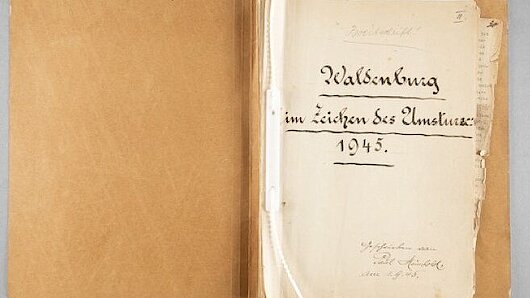 II
Waldenburg
im Zeichen des Umsturzes
1945.
Geschrieben von
Paul